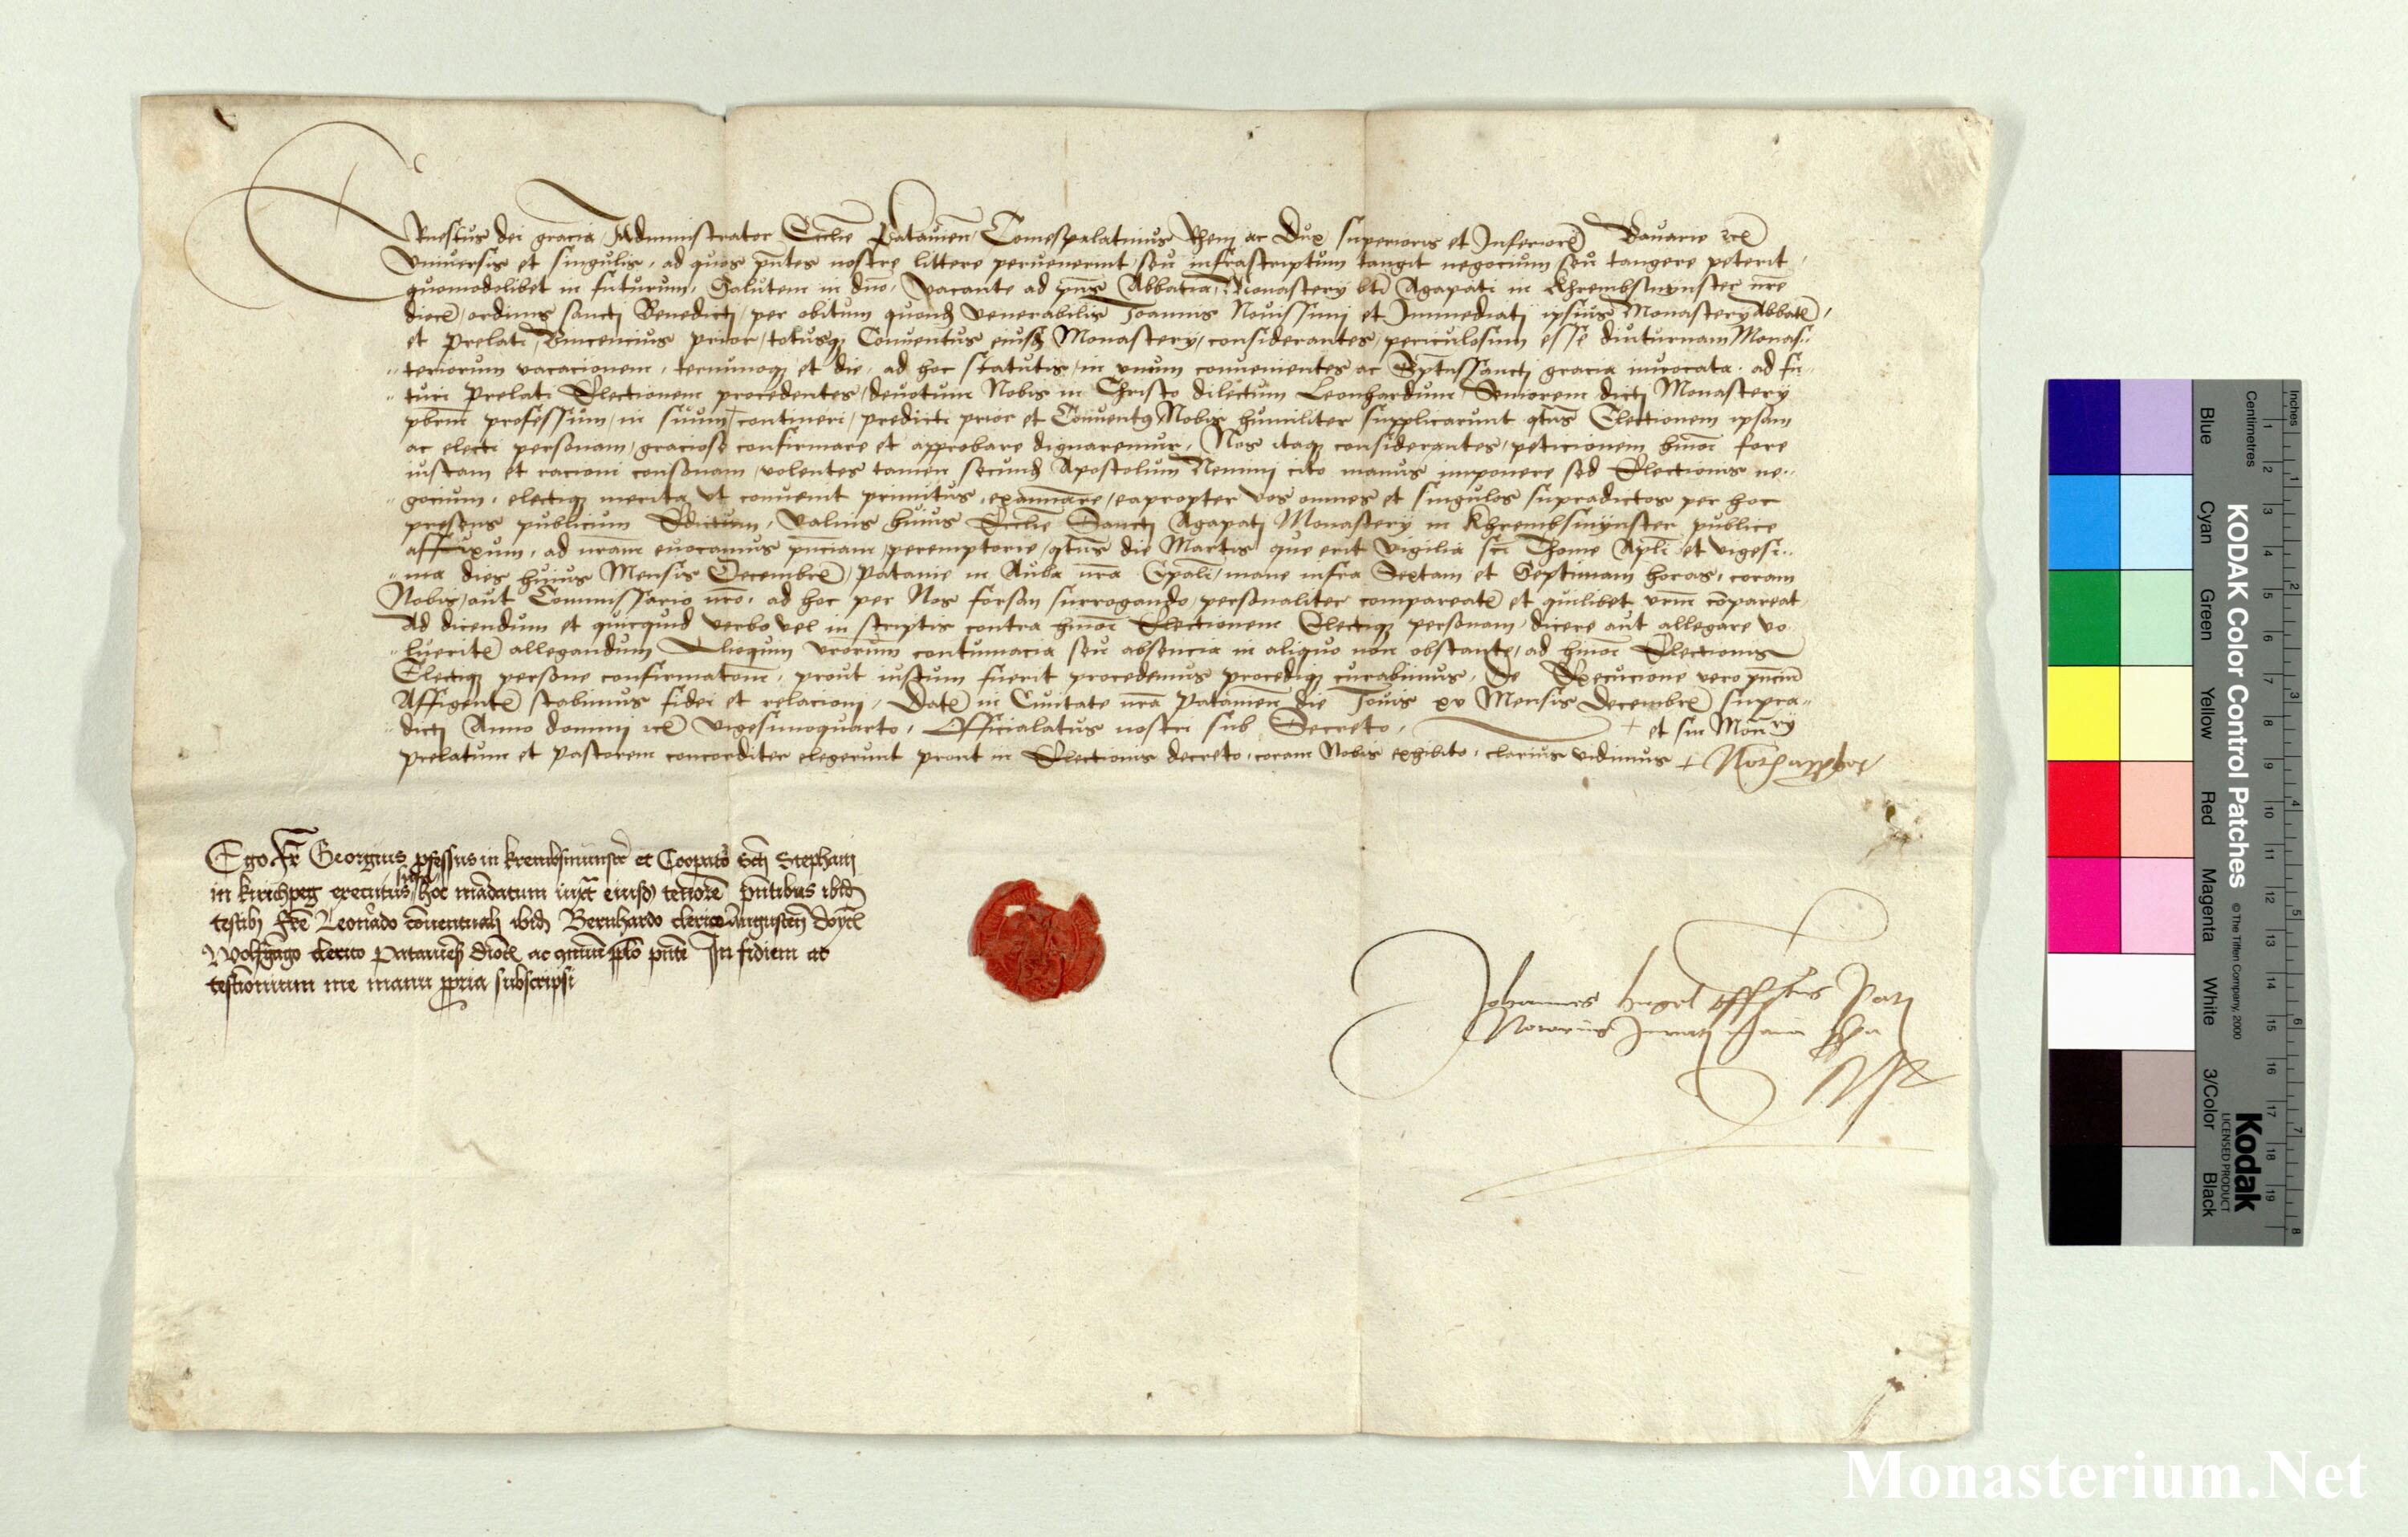 Ernestus dei gracia Administrator Ecclie Patauien Comespalatinus Rheni ac Dux superioris et Inferioris Bauarie
Vniuersis et singulis, ad quos pntes nostre littere peruenerint seu infrascriptum tangit negocium seu tangere poterit,
quomodolibet in futurum, Salutem in dno, Vacante ad pns Abbatia Monastery bti Agapiti in Khrembsmynster nre
dioc, ordinis sancti Benedicti, per obitum quondam Venerabilis Joannis Nouissimi et Immediati ipsius Monastery Abbatis,
et prelati, Vincencius prior, totusq Conuentus eiusd Monastery, considerantes, periculosum esse diuturnam Monas
teriorum vacacionem, terminoq et die, ad hoc statutis, in vnum conuenientes ac Spiritussancti gracia inuocata, ad fu
turi Prelati Electionem procedentes, deuotum Nobis in Christo dilectum Leonhardum Seniorem dicti Monastery
pbrm professum, in suum + contineri, predicti prior et Conuentus Nobis humiliter supplicarunt qtus Electionem ipsam
ac electi personam, graciose confirmare et approbare dignaremur, Nos itaq considerantes, peticionem hmoi fore
iustam et racioni consonam, volentes tamen secund Apostolum Nemini cito manus imponere sed Electionis ne
gocium, electiq merita vt conuenit primitus, examinare, eapropter vos omnes et singulos supradictos per hoc
presens publicum Edictum, Valuis huius Ecclie Sancti Agapiti Monastery in Khrembsmynster publice
affixum, ad nram euocamus pnciam, peremptorie, qtus die Martis que erit Vigilia sci Thome Apli et vigesi
ma dies huius Mensis Decembris, Patauie in Aula nra Epali, mane infra Sextam et Septimam horas, coram
Nobis, aut Commissario nro, ad hoc per Nos forsan surrogando, personaliter compareatis et quilibet vrm compareat
Ad dicendum et quicquid verbo vel in scriptis contra hmoi Electionem Electiq personam, dicere aut allegare vo
lueritis allegandum Alioquin vrorum contumacia seu absencia in aliquo non obstante, ad hmoi Electionis
Electiq persone confirmatom, prout iustum fuerit procedemus procediq curabimus, De Execucione vero pncium
Affigentis stabimus fidei et relacioni, Datis in Ciuitate nra Patauien die Jouis xv Mensis Decembris supra
dicti Anno domini Vigesimoquarto, Officialatus nostri sub Secreto, + et sui Monry
prelatum et pastorem concorditer elegerunt prout in Electionis decreto, coram Nobis exhibito, clarius vidimus +
Ego Fr Georgius pfessus in krembsmunster et Coopator Scti Stephani
in kirichperg executus hoc mandatum iuxta eiusd tenore pntibus ibid
testibus fre Leonardo conuentuali ibid Bernhardo clerico Augusten
Wolfgango clerico Patauien dioc ac populo pnte In fidem ac
testimonium me manu ppria subscripsi
Johannes
Notarius
KODAK Color Control Patches
© The Tiffen Company, 2000
Kodak
LICENSED PRODUCT
Inches 1 2 3 4 5 6 7 8
Centimetres 1 2 3 4 5 6 7 8 9 10 11 12 13 14 15 16 17 18 19
Blue
Cyan
Green
Yellow
Red
Magenta
White
3/Color
Black
Monasterium.Net